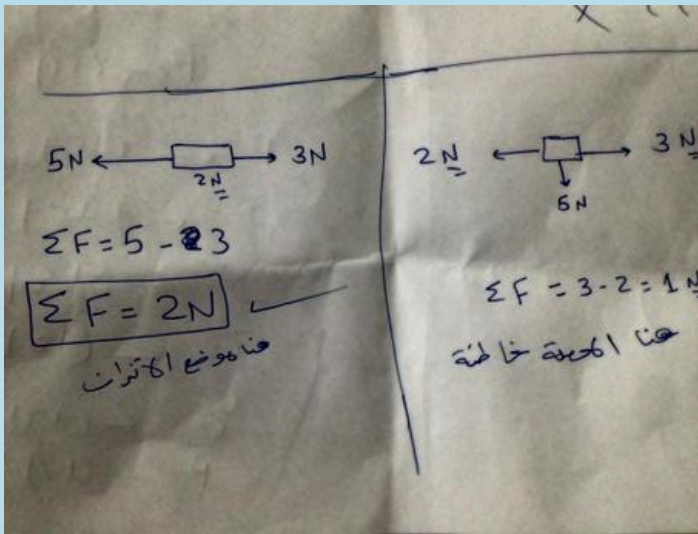 5N 3N
2N
ΣF = 5 - 3
ΣF = 2N
هنا موضع الاتزان
2N 3N
5N
ΣF = 3 - 2 = 1N
هنا خاطئة